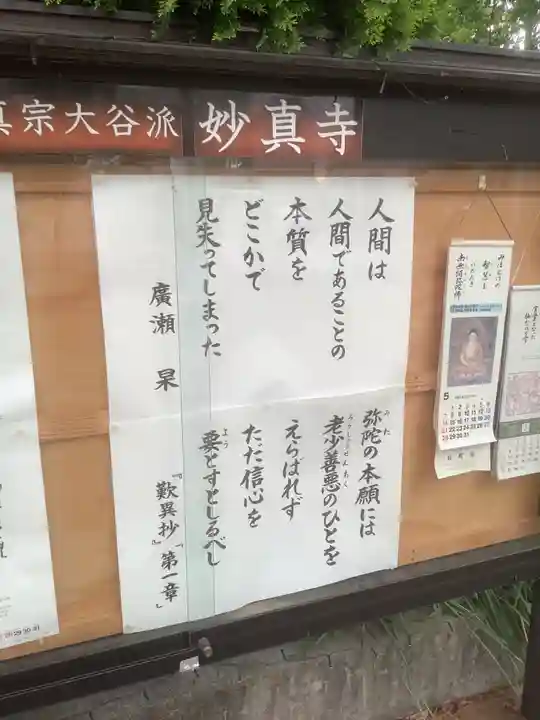 真宗大谷派 妙真寺
人間は
人間であることの
本質を
どこかで
見失ってしまった
廣瀬 杲
弥陀の本願には
老少善悪のひとを
えらばれず
ただ信心を
要とすとしるべし
『歎異抄』「第一章」
5